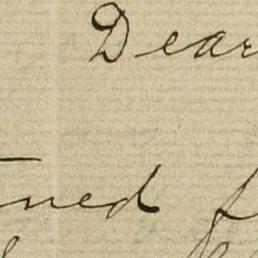 Dear
ned f